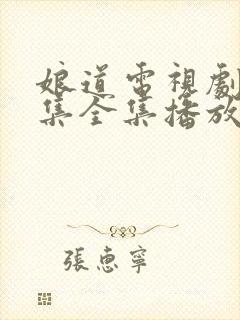 娘道電視劇
集全集播放
張惠寧